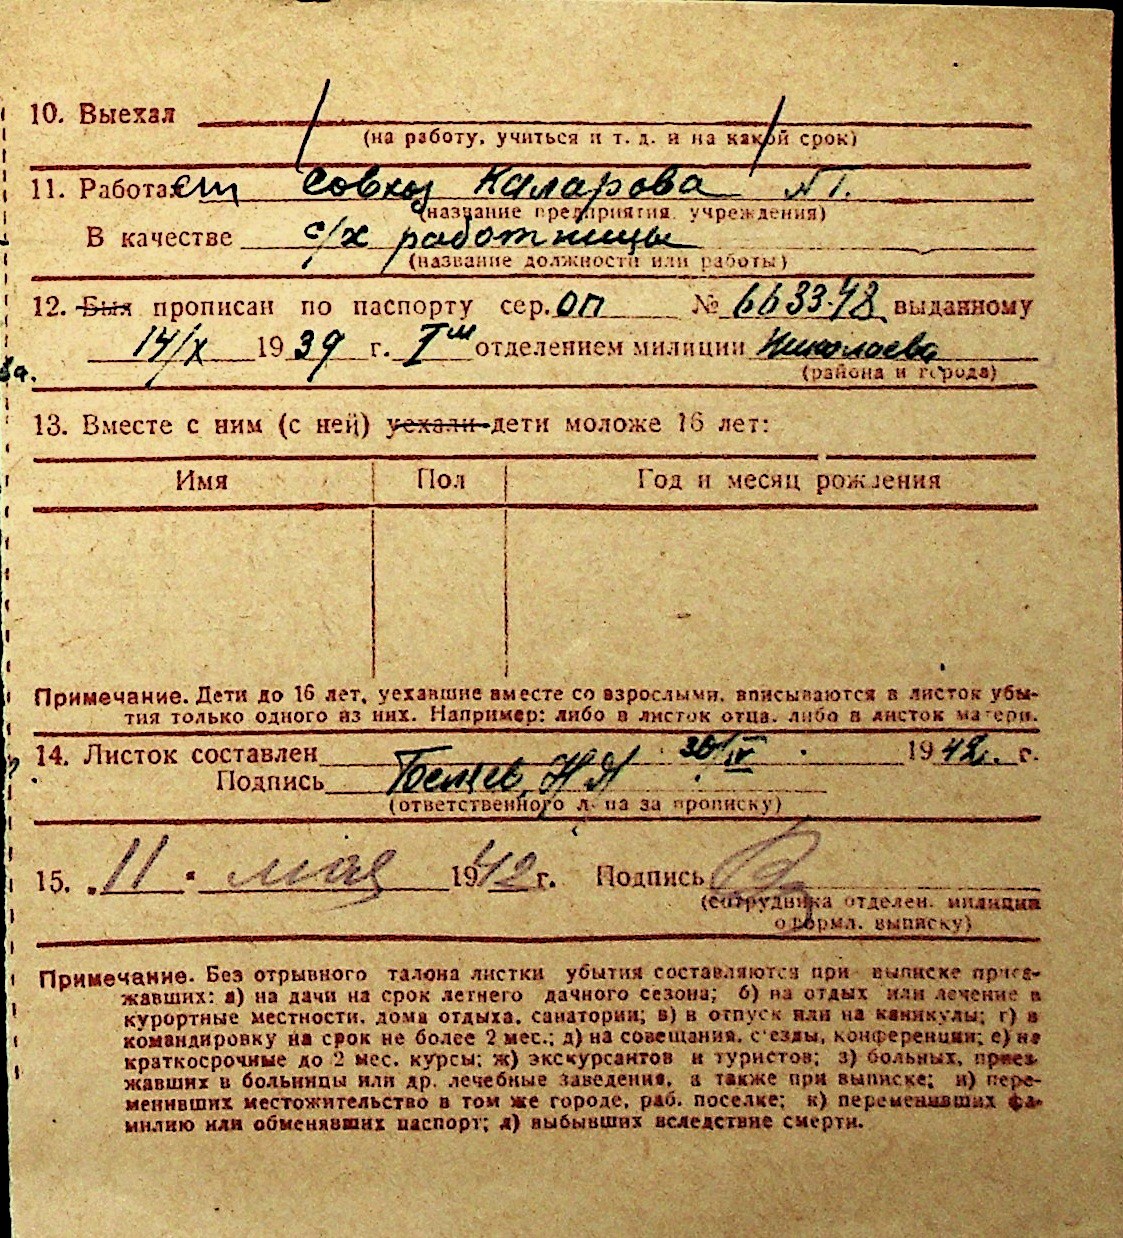 10. Выехал
(на работу, учиться и т. д. и на какой срок)
11. Работает Совхоз Каларова АТ.
(название предприятия, учреждения)
В качестве с/х работницы
(название должности или работы)
12. Был прописан по паспорту сер. ОП № 663348 выданному
14/X 1939 г. I м отделением милиции Николаева
(района и города)
13. Вместе с ним (с ней) уехали дети моложе 16 лет:
Имя Пол Год и месяц рождения
Примечание. Дети до 16 лет, уехавшие вместе со взрослыми, вписываются в листок убы-
тия только одного из них. Например: либо в листок отца, либо в листок матери.
14. Листок составлен 30/IV 1942. г.
Подпись Н Я
(ответственного лица за прописку)
15. 11 мая 1942 г. Подпись
(сотрудника отделен. милиции
оформл. выписку)
Примечание. Без отрывного талона листки убытия составляются при выписке приез-
жавших: а) на дачи на срок летнего дачного сезона; б) на отдых или лечение в
курортные местности, дома отдыха, санатории; в) в отпуск или на каникулы; г) в
командировку на срок не более 2 мес.; д) на совещания, с'езды, конференции; е) на
краткосрочные до 2 мес. курсы; ж) экскурсантов и туристов; з) больных, приез-
жавших в больницы или др. лечебные заведения, а также при выписке; и) пере-
менивших местожительство в том же городе, раб. поселке; к) переменивших фа-
милию или обменявших паспорт; л) выбывших вследствие смерти.